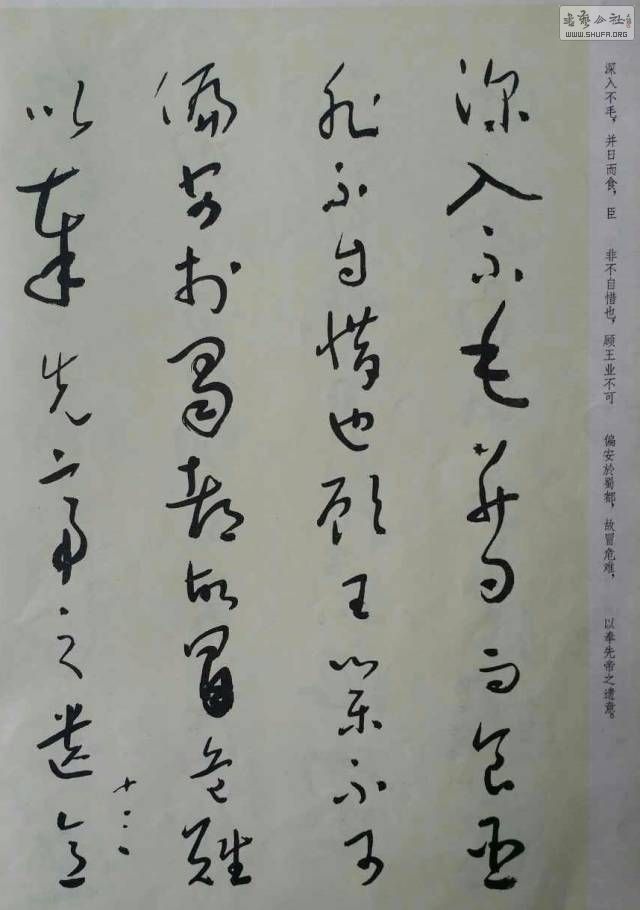 深入不毛并日而食臣
非不自惜也顾王业不可
偏安於蜀都故冒危難
以奉先帝之遗意
十二
深入不毛，并日而食，臣　非不自惜也，顾王业不可　偏安於蜀都，故冒危难，　以奉先帝之遗意。
WWW.SHUFA.ORG